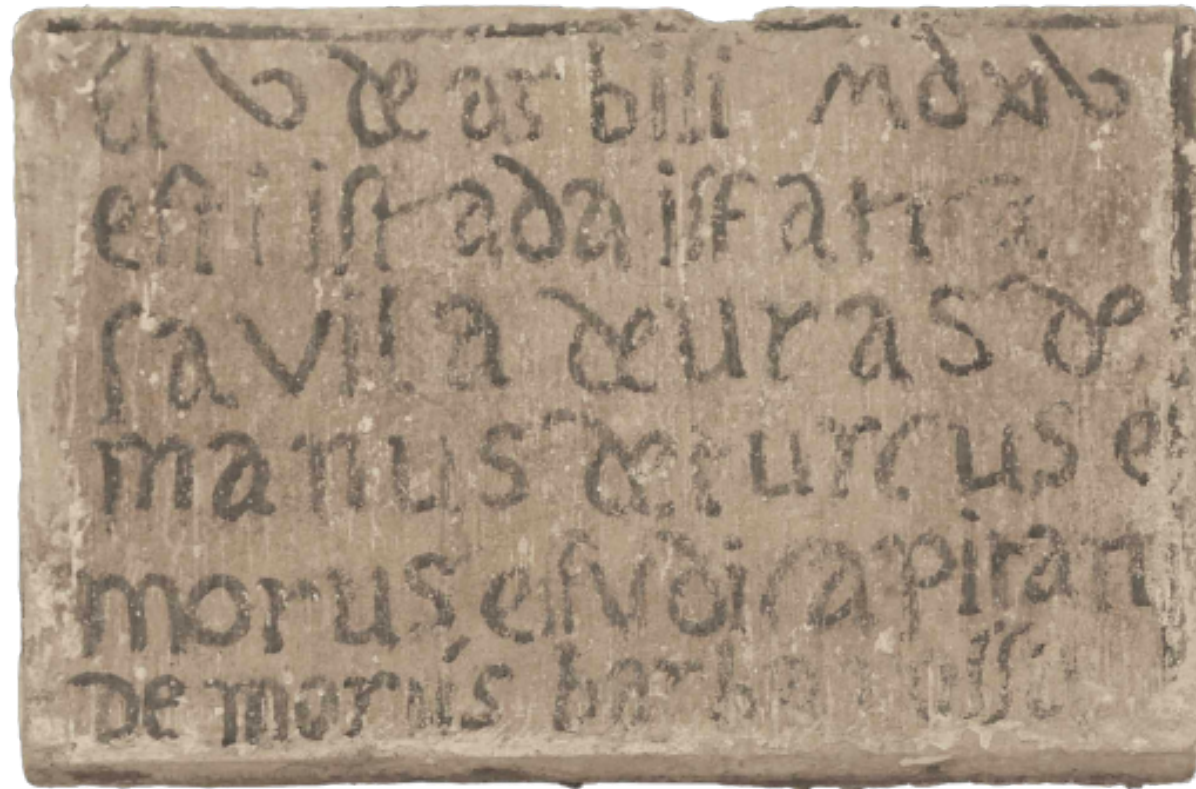 el v de arbili mdxv
esti istada isfatta
sa vila de uras de
manus de turcus e
morus e fudi capitan
de morus barbarossa